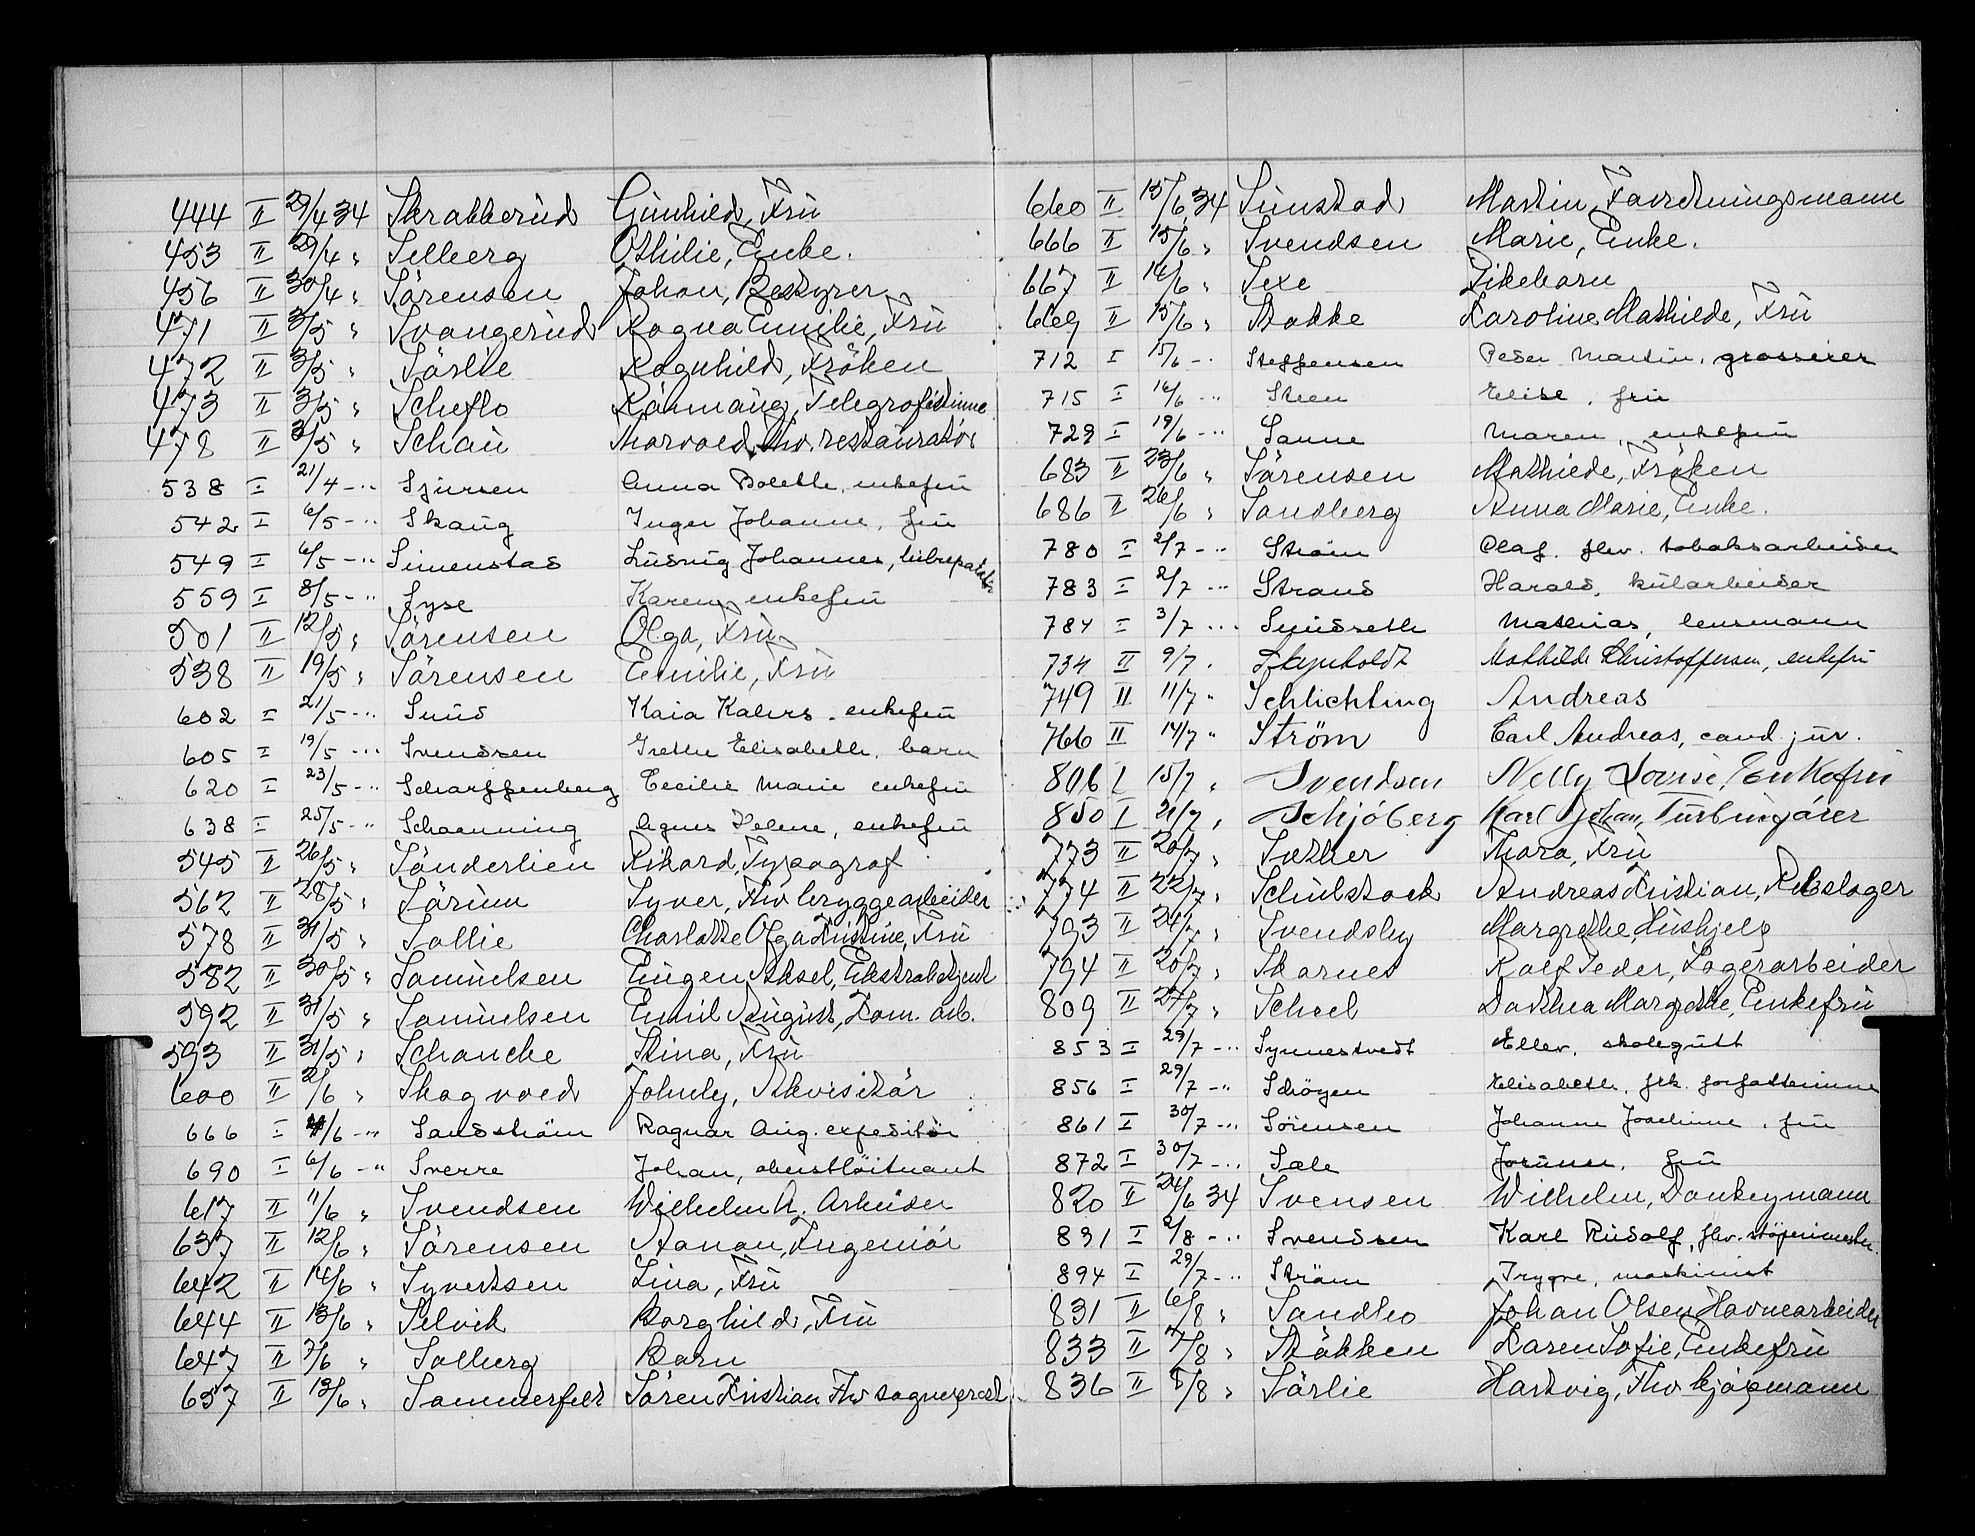 444 II 29/4 34 Skrabberud Gunhild, Fru
453 II 29/4 " Selberg Othilie, Enke.
456 II 30/4 " Sörensen Johan, Bestyrer
471 II 3/5 " Svangerud Ragna Emilie, Fru
472 II 3/5 " Sörlie Ragnhild, Fröken
473 II 3/5 " Scheflo Rönnaug, Telegrafistinne
478 II 3/5 " Schau Thorvald, Fhv. restauratör
538 I 21/4 -"- Sjursen Anna Bolette, enkefru
542 I 6/5 -"- Skaug Inger Johanne, fru
549 I 6/5 -"- Simenstad Ludvig Johannes,
559 I 8/5 -"- Syse Karen, enkefru
501 II 12/5 " Sörensen Olga, Fru
538 II 19/5 " Sörensen Emilie, Fru
602 I 21/5 -"- Sund Kaia Kalers, enkefru
605 I 19/5 -"- Svendsen Grethe Elisabeth, barn
620 I 23/5 -"- Scharffenberg Cecilie Marie enkefru
638 I 25/5 -"- Schaanning Agnes Helene, enkefru
545 II 26/5 " Sönderlien Rikard, Typograf
562 II 28/5 " Sörum Syver, Fhv bryggearbeider
578 II 31/5 " Sollie Charlotte Olga Kristine, Fru
582 II 30/5 " Samuelsen Eugen Aksel, Ekstrabetjent
592 II 31/5 " Samuelsen Emil August, Kom. arb.
593 II 31/5 " Schancke Stina, Fru
600 II 2/6 " Skogvold Johnly, Akvisitör
666 I 4/6 -"- Sandström Ragnar Aug. expeditör
690 I 6/6 -"- Sverre Johan, oberstlöitnant
617 II 11/6 " Svendsen Wilhelm A. Arbeider
637 II 12/6 " Sörensen Aanon, Ingeniör
642 II 14/6 " Syvertsen Lina, Fru
644 II 13/6 " Selvik Borghild, Fru
647 II 7/6 " Solberg Barn
657 II 13/6 " Sommerfelt Sören Kristian Fhv sogneprest
660 II 15/6 34 Sunstad Martin, Forretningsmann
666 II 15/6 " Svendsen Marie, Enke.
667 II 14/6 " Sexe Pikebarn
669 II 15/6 " Stokke Karoline Mathilde, Fru
712 I 15/6 -"- Steffensen Peder Martin, grosserer
715 I 16/6 -"- Steen Elise, fru
729 I 19/6 -"- Sanne Maren, enkefru
683 II 23/6 " Sörensen Mathilde, Fröken
686 II 26/6 " Sandberg Anna Marie, Enke.
780 I 2/7 -"- Ström Olaf, fhv. tobaksarbeider
783 I 2/7 -"- Strand Harald, kularbeider
784 I 3/7 -"- Sundseth Mathias, lensmann
734 II 9/7 " Mathilde Christoffersen, enkefru
749 II 11/7 " Schlichting Andreas
766 II 14/7 " Strøm Carl Andreas, cand. jur.
806 I 15/7 " Svendsen Nelly Lovise, Enkefru
850 I 21/7 " Schjöberg Karl Johan, Turbin
773 II 20/7 " Sæther Thora, Fru
774 II 22/7 " Schulstock Andreas Kristian, Rebslager
793 II 24/7 " Svendsby Margrethe, Hushjelp
794 II 20/7 " Skarnes Rolf Peder, Lagerarbeider
809 II 27/7 " Scheel Dorthea Margrethe, Enkefru
853 I 29/7 -"- Synnestvedt Ellev, skolegutt
856 I 29/7 -"- Schöyen Elisabeth, frk. forfatterinne
861 I 30/7 -"- Sörensen Johanne Joachime, fru
872 I 30/7 -"- Sæle Jorunn, fru
820 II 24/6 34 Svensen Wilhelm, Donkeymann
891 I 2/8 -"- Svendsen Karl Rudolf, fhv. støperimester.
894 I 29/7 -"- Ström Trygve, maskinist
831 II 6/8 " Sandbo Johan Olsen Havnearbeider
833 II 7/8 " Stökken Karen Sofie, Enkefru
836 II 5/8 " Sörlie Hartvig, Fhv kjøpmann